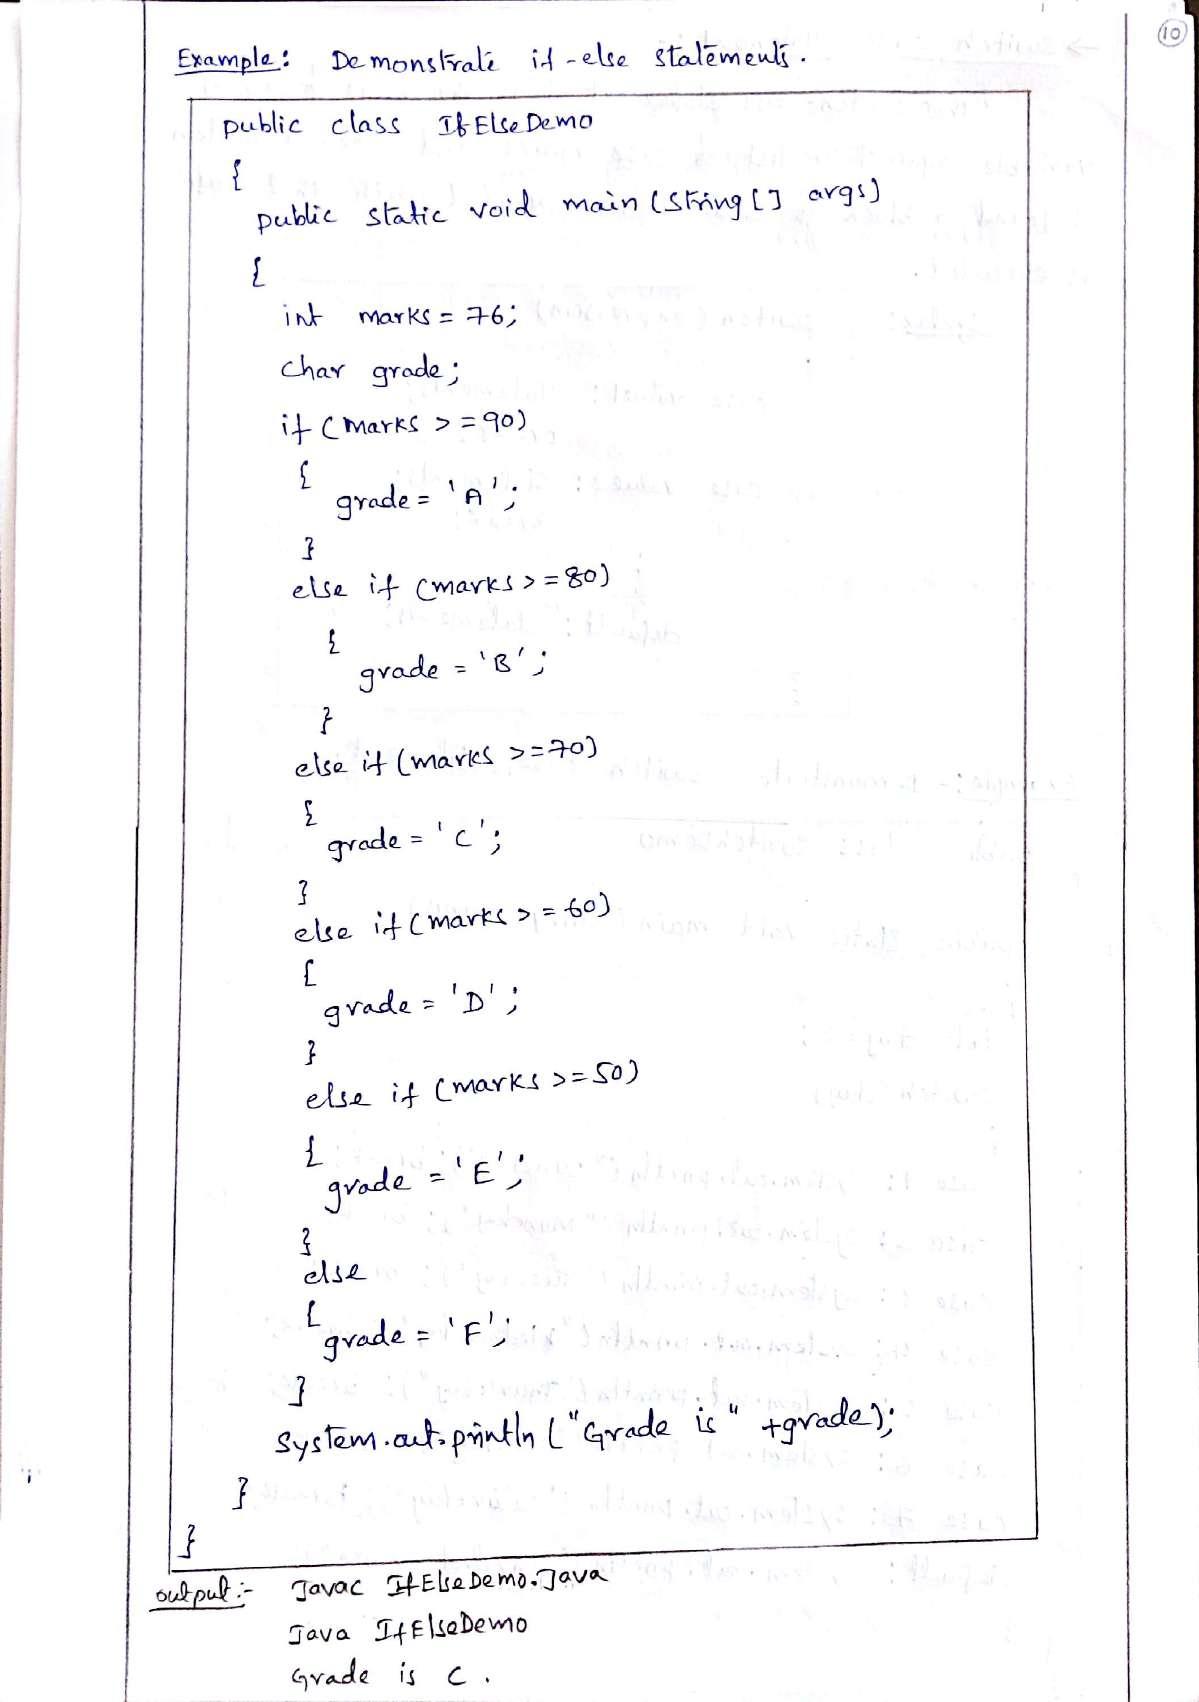 10
Example: Demonstrate if-else statements.
public class IfElseDemo
{
public static void main (String [] args)
{
int marks = 76;
char grade;
if (marks >=90)
{
grade = 'A';
}
else if (marks >=80)
{
grade = 'B';
}
else if (marks >=70)
{
grade = 'C';
}
else if (marks >=60)
{
grade = 'D';
}
else if (marks >=50)
{
grade = 'E';
}
else
{
grade = 'F';
}
System.out.println ("Grade is" +grade);
}
}
output:- Javac IfElseDemo.Java
Java IfElseDemo
Grade is C.